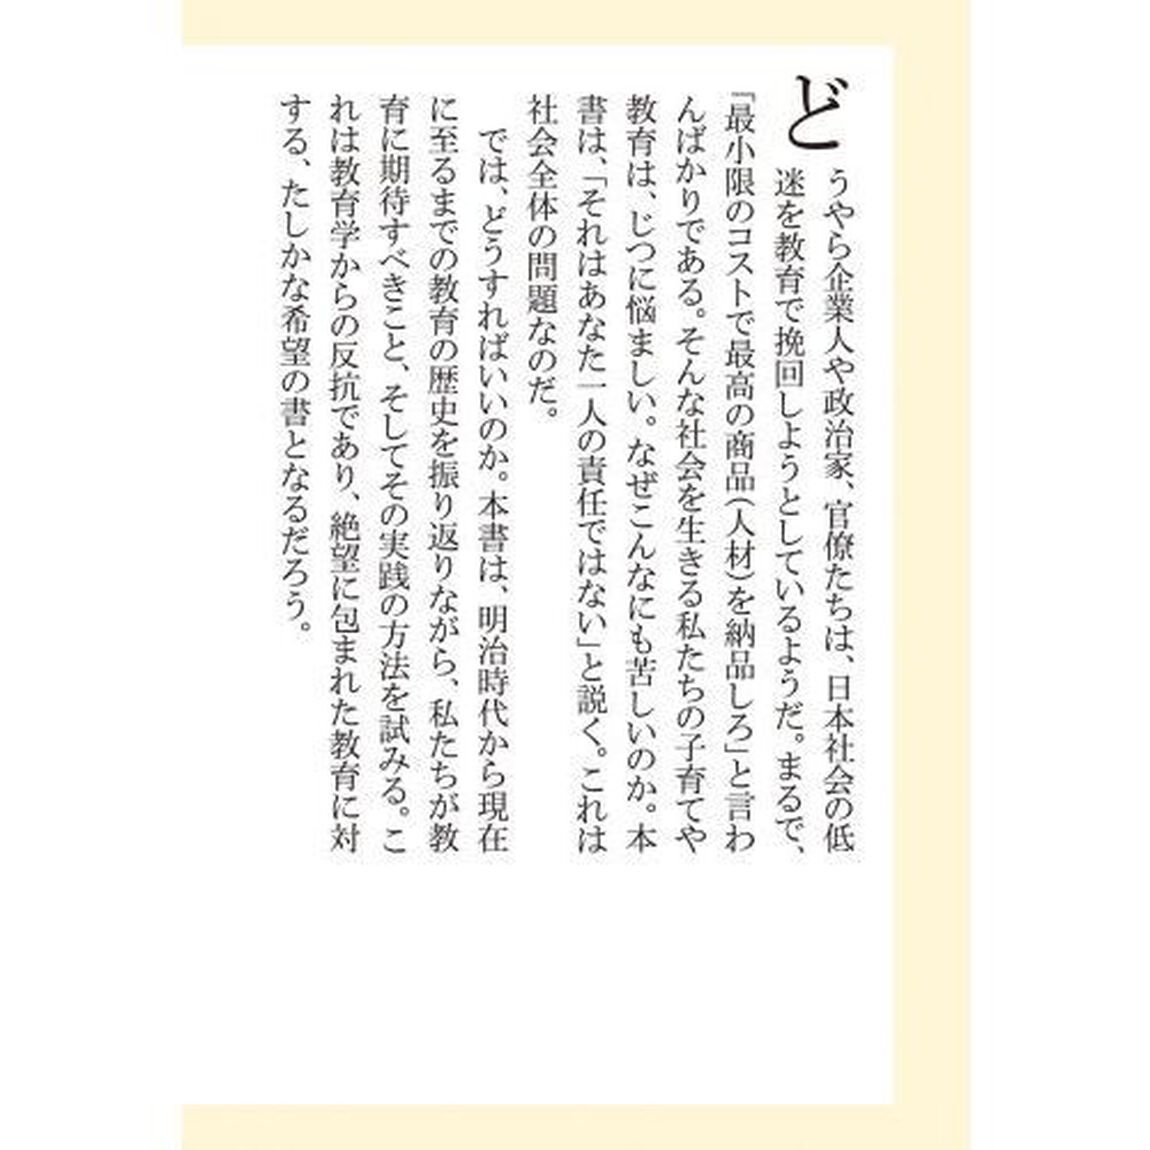 どうやら企業人や政治家、官僚たちは、日本社会の低
迷を教育で挽回しようとしているようだ。まるで、
「最小限のコストで最高の商品（人材）を納品しろ」と言わ
んばかりである。そんな社会を生きる私たちの子育てや
教育は、じつに悩ましい。なぜこんなにも苦しいのか。本
書は、「それはあなた一人の責任ではない」と説く。これは
社会全体の問題なのだ。
では、どうすればいいのか。本書は、明治時代から現在
に至るまでの教育の歴史を振り返りながら、私たちが教
育に期待すべきこと、そしてその実践の方法を試みる。こ
れは教育学からの反抗であり、絶望に包まれた教育に対
する、たしかな希望の書となるだろう。